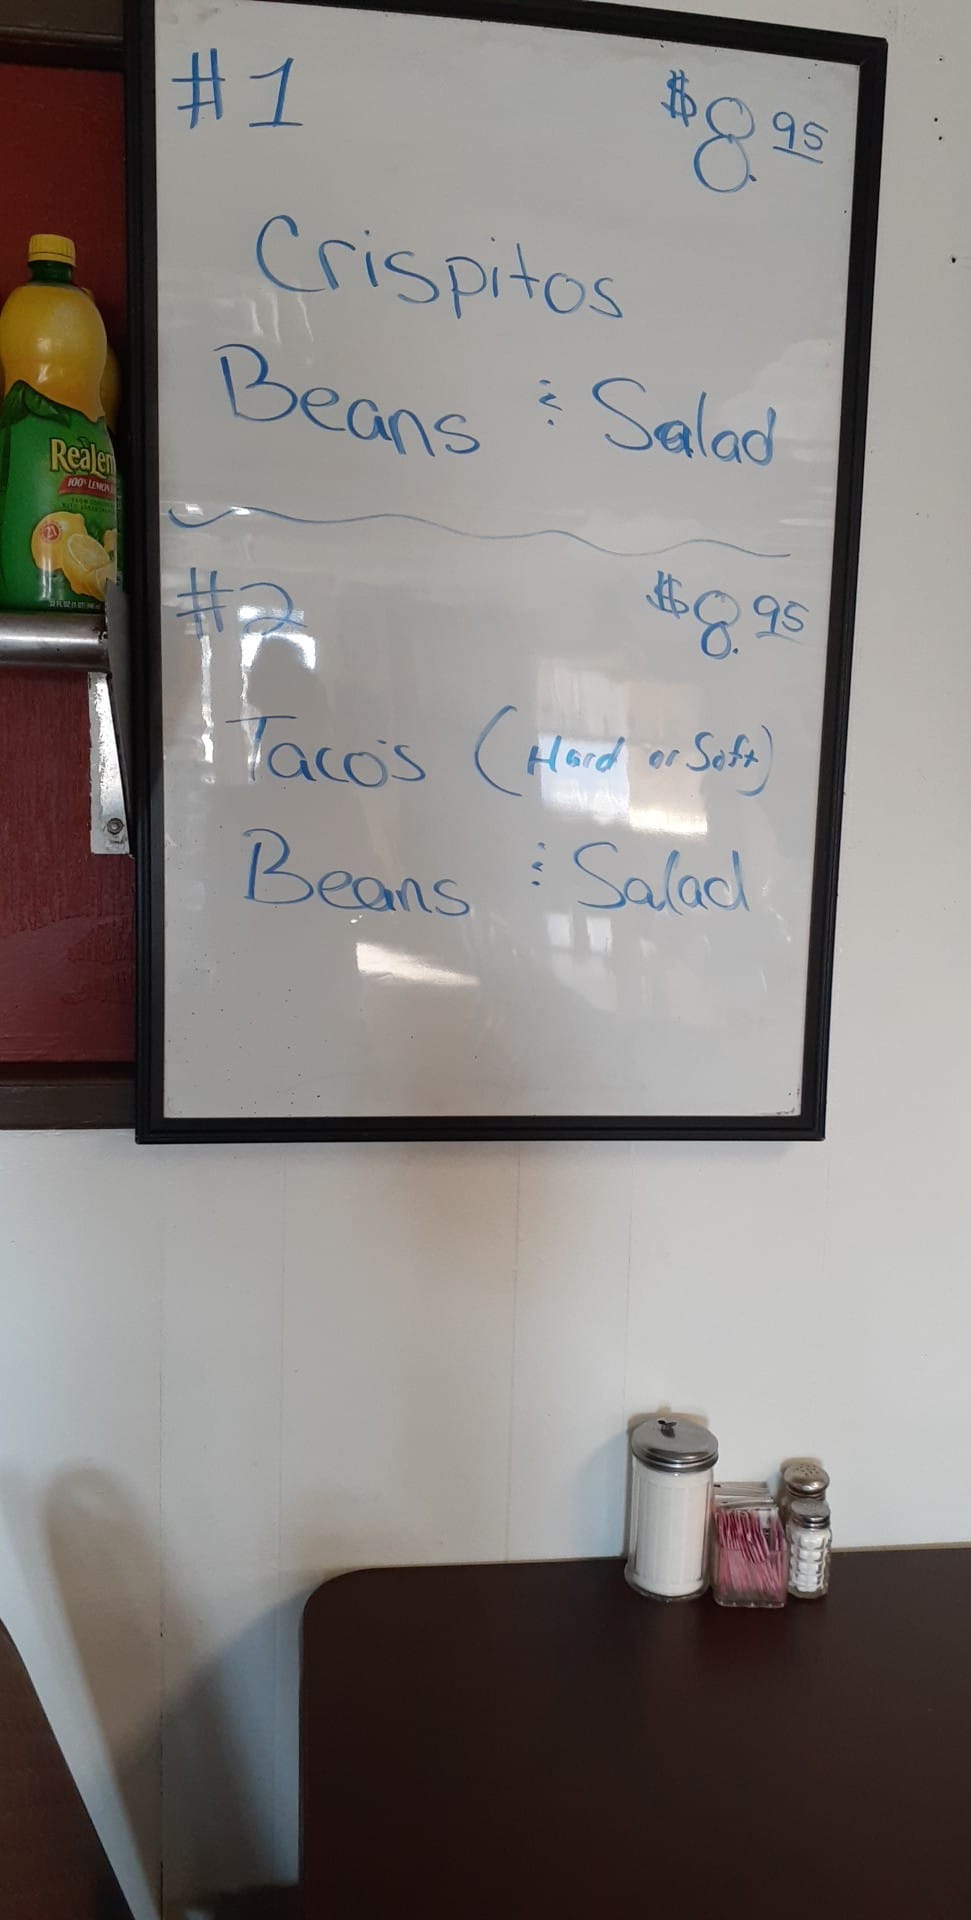 #1 $8.95
Crispitos
Beans & Salad
#2 $8.95
Taco's (Hard or Soft)
Beans & Salad
ReaLem
100% LEMON